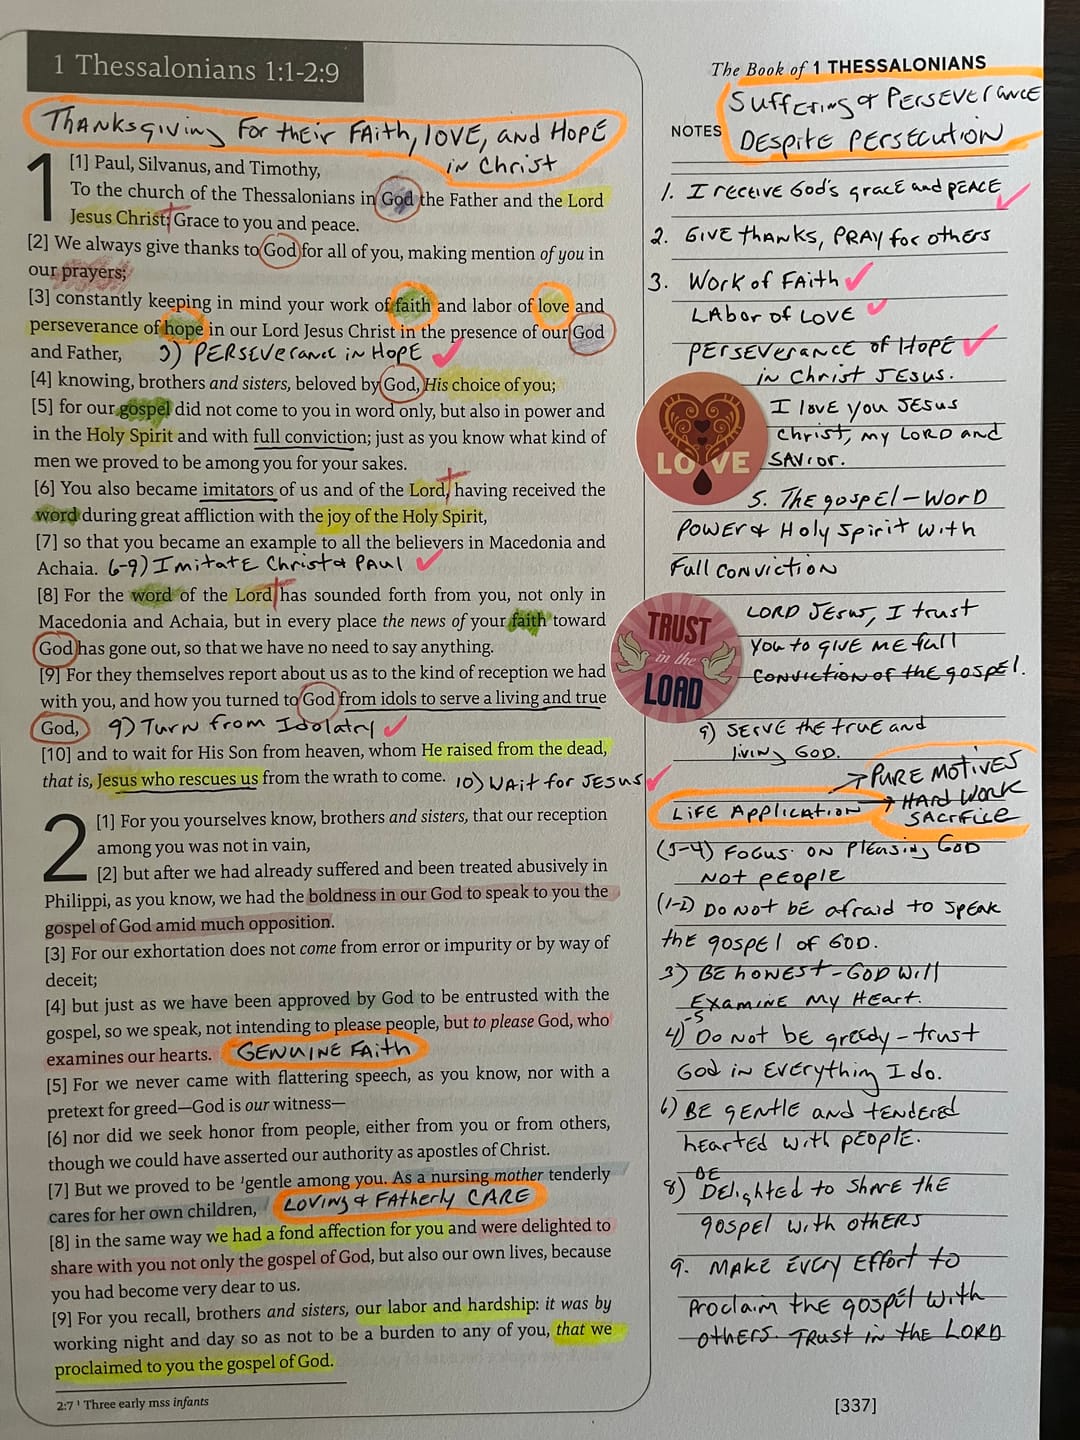 1 Thessalonians 1:1-2:9
Thanksgiving For their Faith, love, and Hope
in Christ
1
[1] Paul, Silvanus, and Timothy,
To the church of the Thessalonians in God the Father and the Lord
Jesus Christ: Grace to you and peace.
[2] We always give thanks to God for all of you, making mention of you in
our prayers;
[3] constantly keeping in mind your work of faith and labor of love and
perseverance of hope in our Lord Jesus Christ in the presence of our God
and Father, 3) Perseverance in Hope ✓
[4] knowing, brothers and sisters, beloved by God, His choice of you;
[5] for our gospel did not come to you in word only, but also in power and
in the Holy Spirit and with full conviction; just as you know what kind of
men we proved to be among you for your sakes.
[6] You also became imitators of us and of the Lord, having received the
word during great affliction with the joy of the Holy Spirit,
[7] so that you became an example to all the believers in Macedonia and
Achaia. 6-9) Imitate Christ & Paul ✓
[8] For the word of the Lord has sounded forth from you, not only in
Macedonia and Achaia, but in every place the news of your faith toward
God has gone out, so that we have no need to say anything.
[9] For they themselves report about us as to the kind of reception we had
with you, and how you turned to God from idols to serve a living and true
God, 9) Turn from Idolatry ✓
[10] and to wait for His Son from heaven, whom He raised from the dead,
that is, Jesus who rescues us from the wrath to come. 10) Wait for Jesus ✓
2
[1] For you yourselves know, brothers and sisters, that our reception
among you was not in vain,
[2] but after we had already suffered and been treated abusively in
Philippi, as you know, we had the boldness in our God to speak to you the
gospel of God amid much opposition.
[3] For our exhortation does not come from error or impurity or by way of
deceit;
[4] but just as we have been approved by God to be entrusted with the
gospel, so we speak, not intending to please people, but to please God, who
examines our hearts. Genuine Faith
[5] For we never came with flattering speech, as you know, nor with a
pretext for greed—God is our witness—
[6] nor did we seek honor from people, either from you or from others,
though we could have asserted our authority as apostles of Christ.
[7] But we proved to be ¹gentle among you. As a nursing mother tenderly
cares for her own children, Loving & Fatherly Care
[8] in the same way we had a fond affection for you and were delighted to
share with you not only the gospel of God, but also our own lives, because
you had become very dear to us.
[9] For you recall, brothers and sisters, our labor and hardship: it was by
working night and day so as not to be a burden to any of you, that we
proclaimed to you the gospel of God.
2:7 ¹ Three early mss infants
The Book of 1 THESSALONIANS
Suffering & Perseverance
NOTES Despite Persecution
1. I receive God's grace and peace ✓
2. Give thanks, pray for others
3. Work of Faith ✓
Labor of Love ✓
Perseverance of Hope ✓
in Christ Jesus.
I love you Jesus
Christ, my Lord and
Savior.
LOVE
5. The gospel—Word
Power & Holy Spirit with
Full conviction
TRUST
in the
LOAD
Lord Jesus, I trust
you to give me full
conviction of the gospel.
9) Serve the true and
living God.
Life Application → Pure Motives
→ Hard Work
Sacrifice
(3-4) Focus on pleasing God
Not people
(1-2) Do not be afraid to speak
the gospel of God.
3) Be honest - God will
Examine my heart.
4)-5 Do not be greedy - trust
God in everything I do.
6) Be gentle and tendered
hearted with people.
8) Be Delighted to share the
gospel with others
9. Make every effort to
Proclaim the gospel with
others. Trust in the Lord
[337]